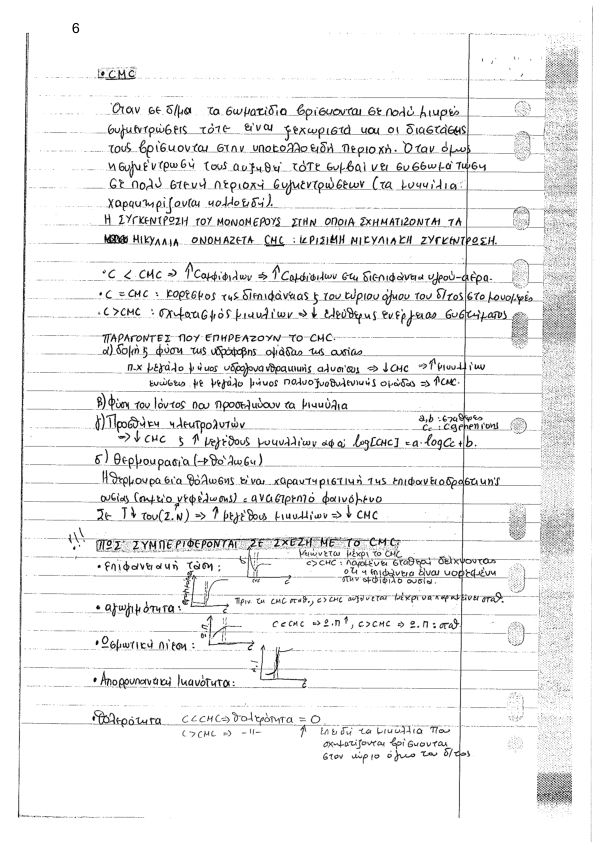 6
• CMC
Όταν σε δ/μα τα σωματίδια βρίσκονται σε πολύ μικρές
συγκεντρώσεις τότε είναι ξεχωριστά και οι διαστάσεις
τους βρίσκονται στην υποκολλοειδή περιοχή. Όταν όμως
η συγκέντρωσή τους αυξηθεί τότε συμβαίνει συσσωμάτωση
σε πολύ στενή περιοχή συγκεντρώσεων (τα μικκύλια
χαρακτηρίζονται κολλοειδή).
Η ΣΥΓΚΕΝΤΡΩΣΗ ΤΟΥ ΜΟΝΟΜΕΡΟΥΣ ΣΤΗΝ ΟΠΟΙΑ ΣΧΗΜΑΤΙΖΟΝΤΑΙ ΤΑ
ΜΙΚΥΛΛΙΑ ΟΝΟΜΑΖΕΤΑΙ CMC : ΚΡΙΣΙΜΗ ΜΙΚΥΛΙΑΚΗ ΣΥΓΚΕΝΤΡΩΣΗ.
• C < CMC ⇒ ↑ Cαμφιφίλων ⇒ ↑ Cαμφιφίλων στη διεπιφάνεια υγρού-αέρα.
• C = CMC : κορεσμός της διεπιφάνειας & του κύριου όγκου του δ/τος στο μονομερές
• C > CMC : σχηματισμός μικυλλίων ⇒ ↓ ελεύθερης ενέργειας συστήματος
ΠΑΡΑΓΟΝΤΕΣ ΠΟΥ ΕΠΗΡΕΑΖΟΥΝ ΤΟ CMC.
α) δομή & φύση της υδρόφοβης ομάδας της ουσίας
π.χ μεγάλο μήκος υδρογονανθρακικής αλυσίδας ⇒ ↓ CMC → ↑ μικυλλίων
ενώσεις με μεγάλο μήκος πολυοξυαιθυλενικής ομάδας ⇒ ↑ CMC.
β) φύση του ιόντος που προσελκύουν τα μικκύλια
γ) Προσθήκη ηλεκτρολυτών
a, b : σταθερές
Cc : Cgegenions
⇒ ↓ CMC & ↑ μεγέθους μικυλλίων αφού log[CMC] = a · logCc + b.
δ) Θερμοκρασία (→ θόλωσης)
Η θερμοκρασία θόλωσης είναι χαρακτηριστική της επιφανειοδραστικής
ουσίας (σημείο νεφέλωσης) = αναστρεπτό φαινόμενο
Σε T ↓ του (Σ.Ν) ⇒ ↑ μεγέθους μικυλλίων ⇒ ↓ CMC
!!! ΠΩΣ ΣΥΜΠΕΡΙΦΕΡΟΝΤΑΙ ΣΕ ΣΧΕΣΗ ΜΕ ΤΟ CMC:
• επιφανειακή τάση :
μειώνεται μέχρι το CMC
c > CMC : παραμένει σταθερή δείχνοντας
ότι η επιφάνεια είναι κορεσμένη
στην αμφίφιλο ουσία.
cmc
c
• αγωγιμότητα :
c
Πριν το CMC σταθ., c > CMC αυξάνεται μέχρι να παραμείνει σταθ.
• Ωσμωτική πίεση :
Ω.Π
c
C < CMC ⇒ Ω.Π ↑, C > CMC ⇒ Ω.Π : σταθ
• Απορρυπαντική Ικανότητα :
A.I
c
• Θολερότητα C < CMC ⇒ θολερότητα = 0
C > CMC ⇒ -||- ↑ επειδή τα μικυλλια που
σχηματίζονται βρίσκονται
στον κύριο όγκο του δ/τος